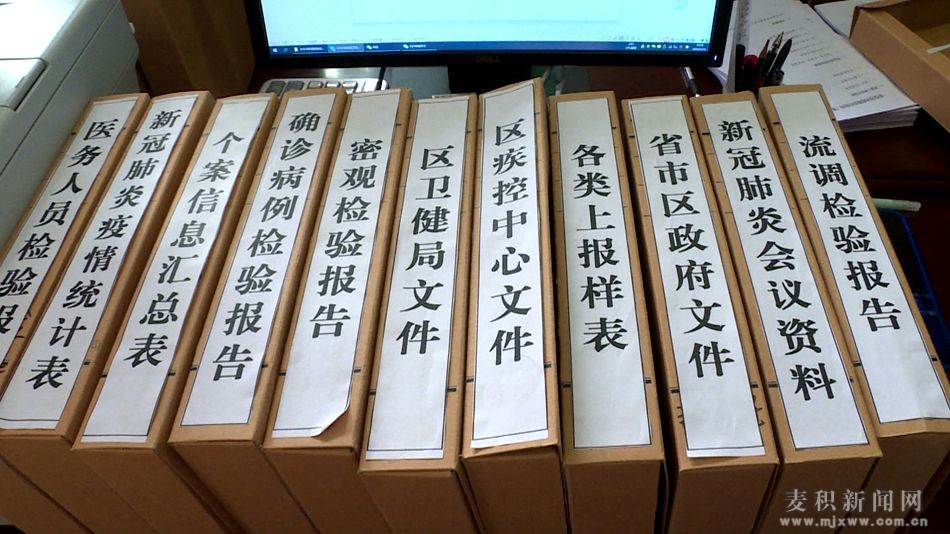 医务人员检验报
新冠肺炎疫情统计表
个案信息汇总表
确诊病例检验报告
密观检验报告
区卫健局文件
区疾控中心文件
各类上报样表
省市区政府文件
新冠肺炎会议资料
流调检验报告
DELL
麦积新闻网
www.mjxww.com.cn